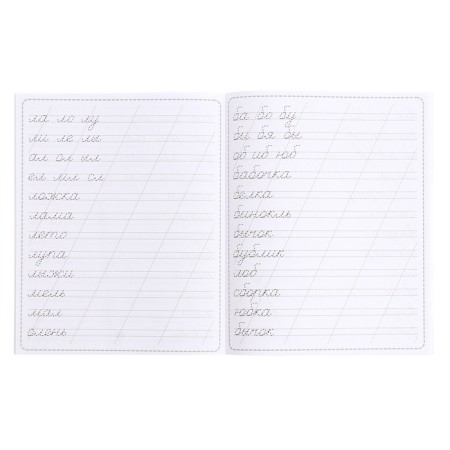 ла ло лу
ли ле лы
ал ол ыл
ел ил ол
ложка
лама
лето
лупа
лыжи
мель
мал
олень
ба бо бу
би бя бы
об иб юб
бабочка
белка
бинокль
бычок
бублик
лоб
сборка
юбка
бычок